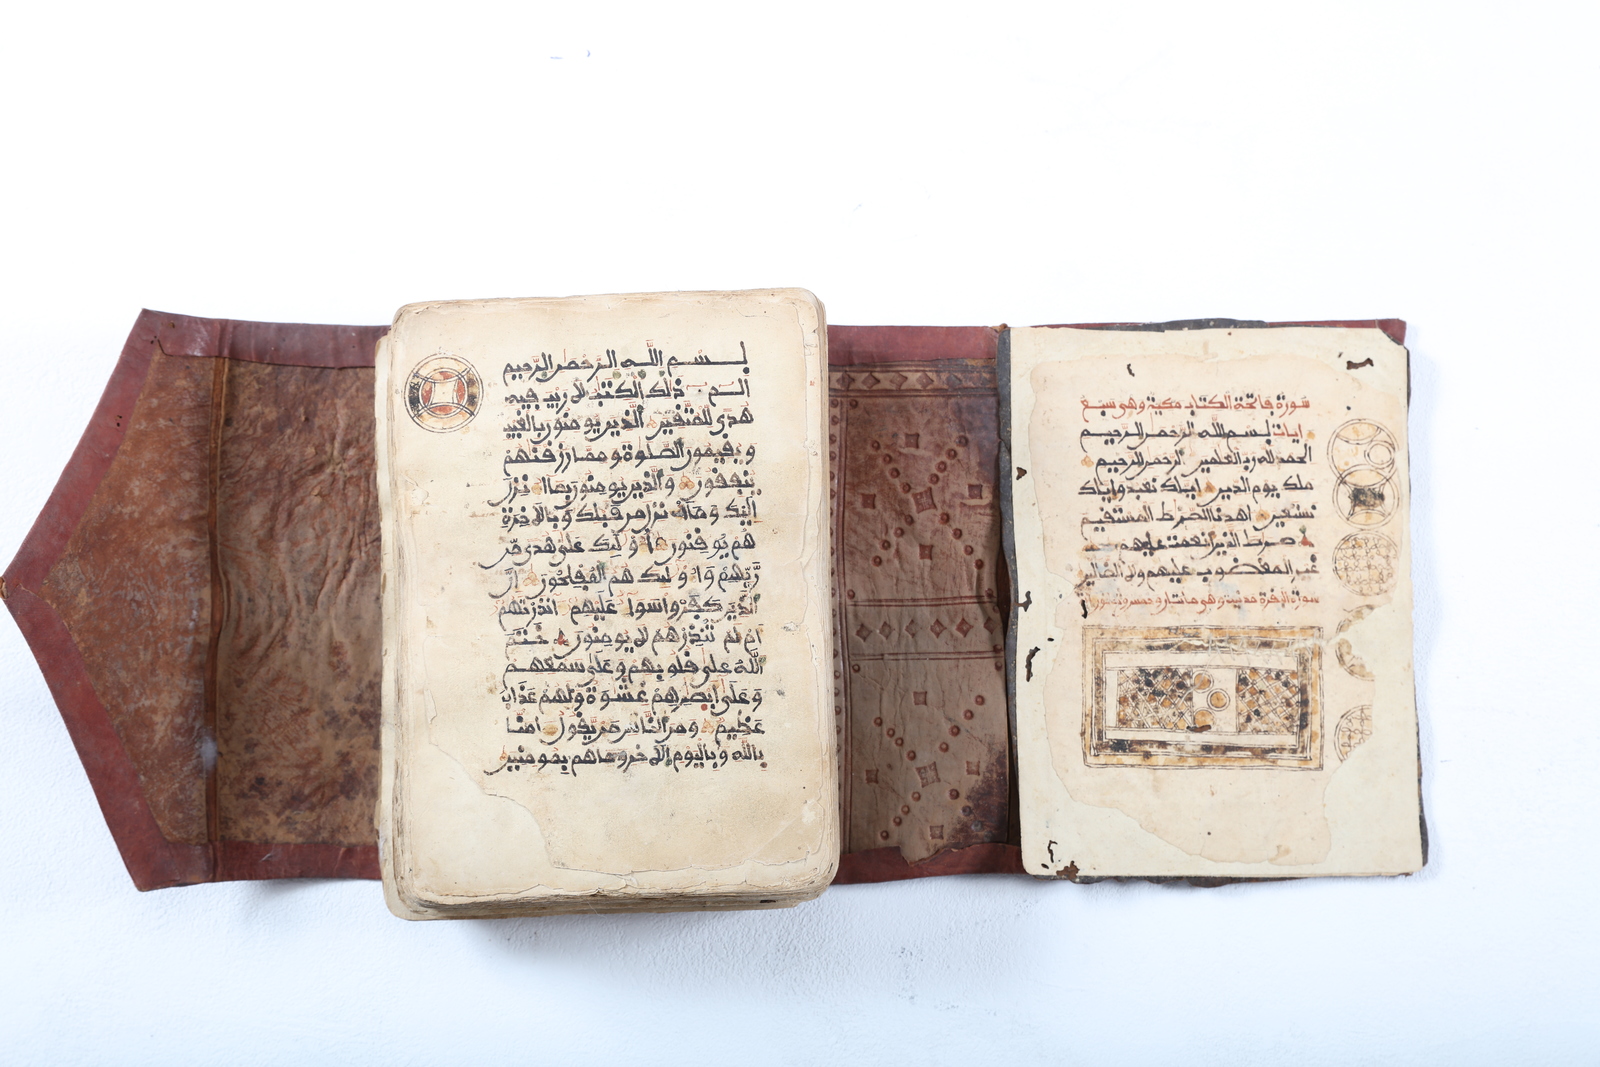 سورة فاتحة الكتاب مكية وهي سبع
ايات بسم الله الرحمن الرحيم
الحمد لله رب العلمين الرحمن الرحيم
ملك يوم الدين اياك نعبد واياك
نستعين اهدنا الصرط المستقيم
صرط الذين انعمت عليهم
غير المغضوب عليهم ولا الضالين
سورة البقرة مدنية وهي مائتان وخمس وثمنون
بسم الله الرحمن الرحيم
الم ذلك الكتب لا ريب فيه
هدى للمتقين الذين يومنون بالغيب
ويقيمون الصلوة ومما رزقنهم
ينفقون والذين يومنون بما انزل
اليك وما انزل من قبلك وبالاخرة
هم يوقنون اوليك على هدى من
ربهم واوليك هم المفلحون ان
الذين كفروا سوا عليهم انذرتهم
ام لم تنذرهم لا يومنون ختم
الله على قلوبهم وعلى سمعهم
وعلى ابصرهم غشوة ولهم عذاب
عظيم ومن الناس من يقول امنا
بالله وباليوم الاخر وما هم بمومنين